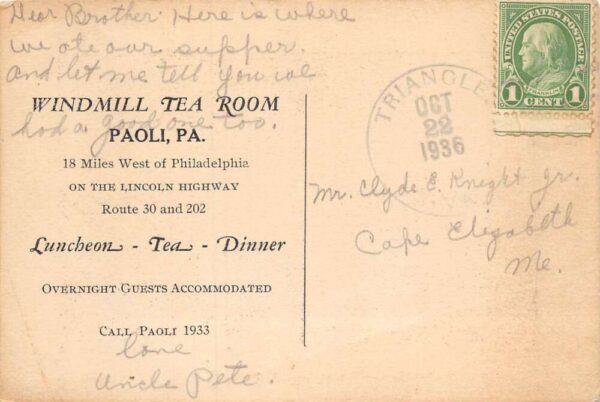 Dear Brother Here is where
we ate our supper.
and let me tell you we
had a good one too.
WINDMILL TEA ROOM
PAOLI, PA.
18 Miles West of Philadelphia
ON THE LINCOLN HIGHWAY
Route 30 and 202
Luncheon - Tea - Dinner
OVERNIGHT GUESTS ACCOMMODATED
CALL PAOLI 1933
love
Uncle Pete.
TRIANGLE
OCT
22
1936
UNITED STATES POSTAGE
FRANKLIN
1 CENT 1
Mr. Clyde E. Knight Jr.
Cape Elizabeth
Me.